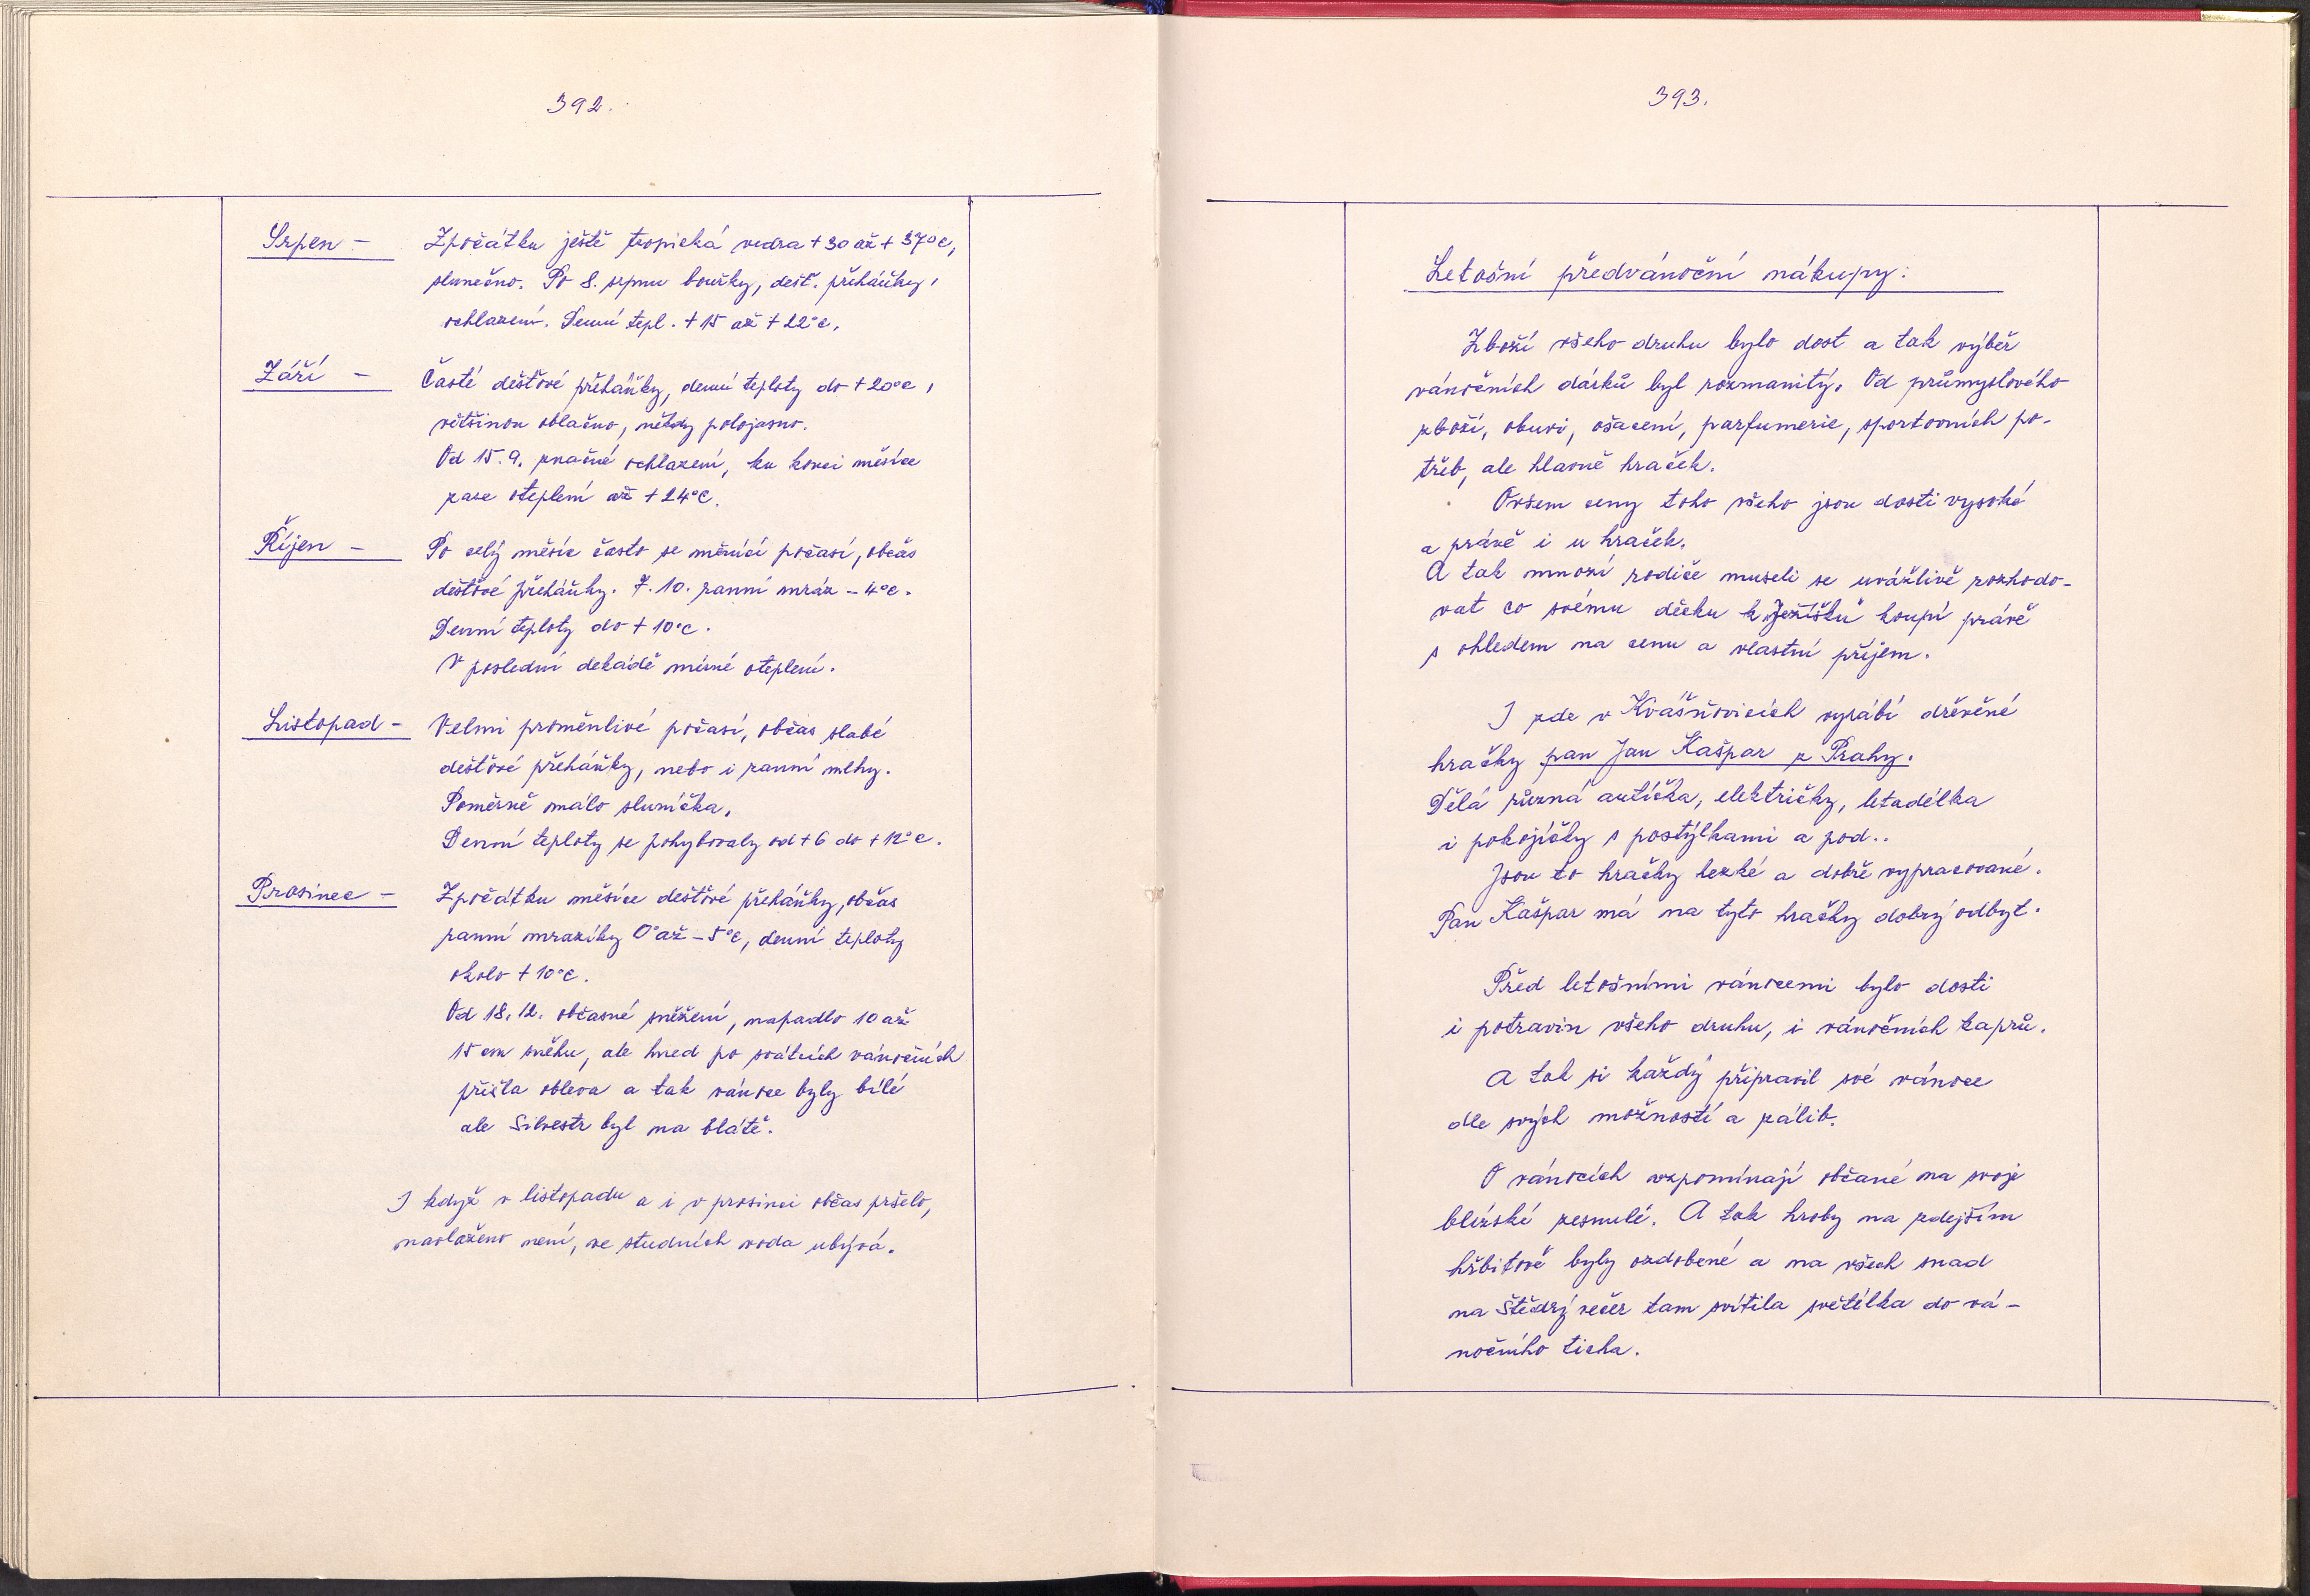 392.
Srpen - Zpočátku ještě tropická vedra + 30 až + 37°C,
slunečno. Po 8. srpnu bouřky, dešť. přeháňky,
ochlazení. Denní tepl. + 15 až + 22°C.
Září - Časté dešťové přeháňky, denní teploty do + 20°C,
většinou oblačno, někdy polojasno.
Od 15.9. značné ochlazení, ku konci měsíce
zase oteplení až + 24°C.
Říjen - Po celý měsíc často se měnící počasí, občas
dešťové přeháňky. 7. 10. ranní mráz - 4°C.
Denní teploty do + 10°C.
V poslední dekádě mírné oteplení.
Listopad - Velmi proměnlivé počasí, občas slabé
dešťové přeháňky, nebo i ranní mlhy.
Poměrně málo sluníčka.
Denní teploty se pohybovaly od + 6 do + 12°C.
Prosinec - Zpočátku měsíce dešťové přeháňky, občas
ranní mrazíky 0° až - 5°C, denní teploty
okolo + 10°C.
Od 18. 12. občasné sněžení, napadlo 10 až
15 cm sněhu, ale hned po svátcích vánočních
přišla obleva a tak vánoce byly bílé
ale Silvestr byl na blátě.
I když v listopadu a i v prosinci občas pršelo,
navlaženo není, ve studních voda ubývá.
393.
Letošní předvánoční nákupy:
Zboží všeho druhu bylo dost a tak výběr
vánočních dárků byl rozmanitý. Od průmyslového
zboží, obuvi, ošacení, parfumerie, sportovních po-
třeb, ale hlavně hraček.
Ovšem ceny toho všeho jsou dosti vysoké
a právě i u hraček.
A tak mnozí rodiče museli se uvážlivě rozhodo-
vat co svému děcku k „Ježíšku" koupí právě
s ohledem na cenu a vlastní příjem.
I zde v Kvášňovicích vyrábí dřevěné
hračky pan Jan Kašpar z Prahy.
Dělá různá autíčka, električky, letadélka
i pokojíčky s postýlkami a pod..
Jsou to hračky hezké a dobře vypracované.
Pan Kašpar má na tyto hračky dobrý odbyt.
Před letošními vánocemi bylo dosti
i potravin všeho druhu, i vánočních kaprů.
A tak si každý připravil své vánoce
dle svých možností a zálib.
O vánocích vzpomínají občané na svoje
blízské zesnulé. A tak hroby na zdejším
hřbitově byly ozdobené a na všech snad
na Štědrý večer tam svítila světélka do vá-
nočního ticha.